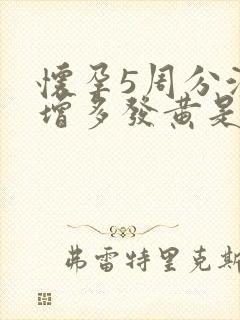 懷孕5周分
增多發黃是
弗雷特里克斯